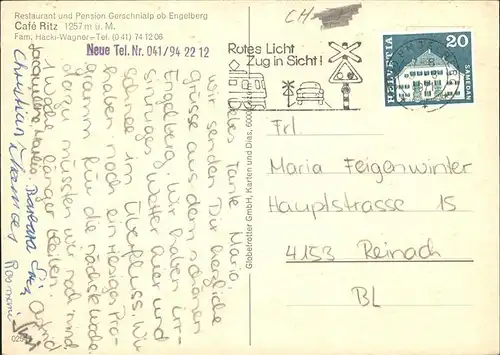 Restaurant und Pension Gerschnialp ob Engelberg
Café Ritz 1257 m ü. M.
Fam. Häcki-Wagner – Tel. (041) 74 12 06
Neue Tel. Nr. 041/94 22 12
CH
Rotes Licht
Zug in Sicht!
HELVETIA
20
SAMEDAN
Liebes Tante Maria,
wir senden Dir herzliche
Grüsse aus dem schönen
Engelberg. Wir haben irr-
sinniges Wetter hier und
Schnee im Überfluss. Wir
haben noch ein riesiges Pro-
gramm für die nächste Woche.
dazu müssten wir noch mind.
1 Woche länger bleiben.
Jacqueline Barbara Astrid
Christian
Globetrotter GmbH, Karten und Dias, 6000
Frl
Maria Feigenwinter
Hauptstrasse 15
4153 Reinach
BL